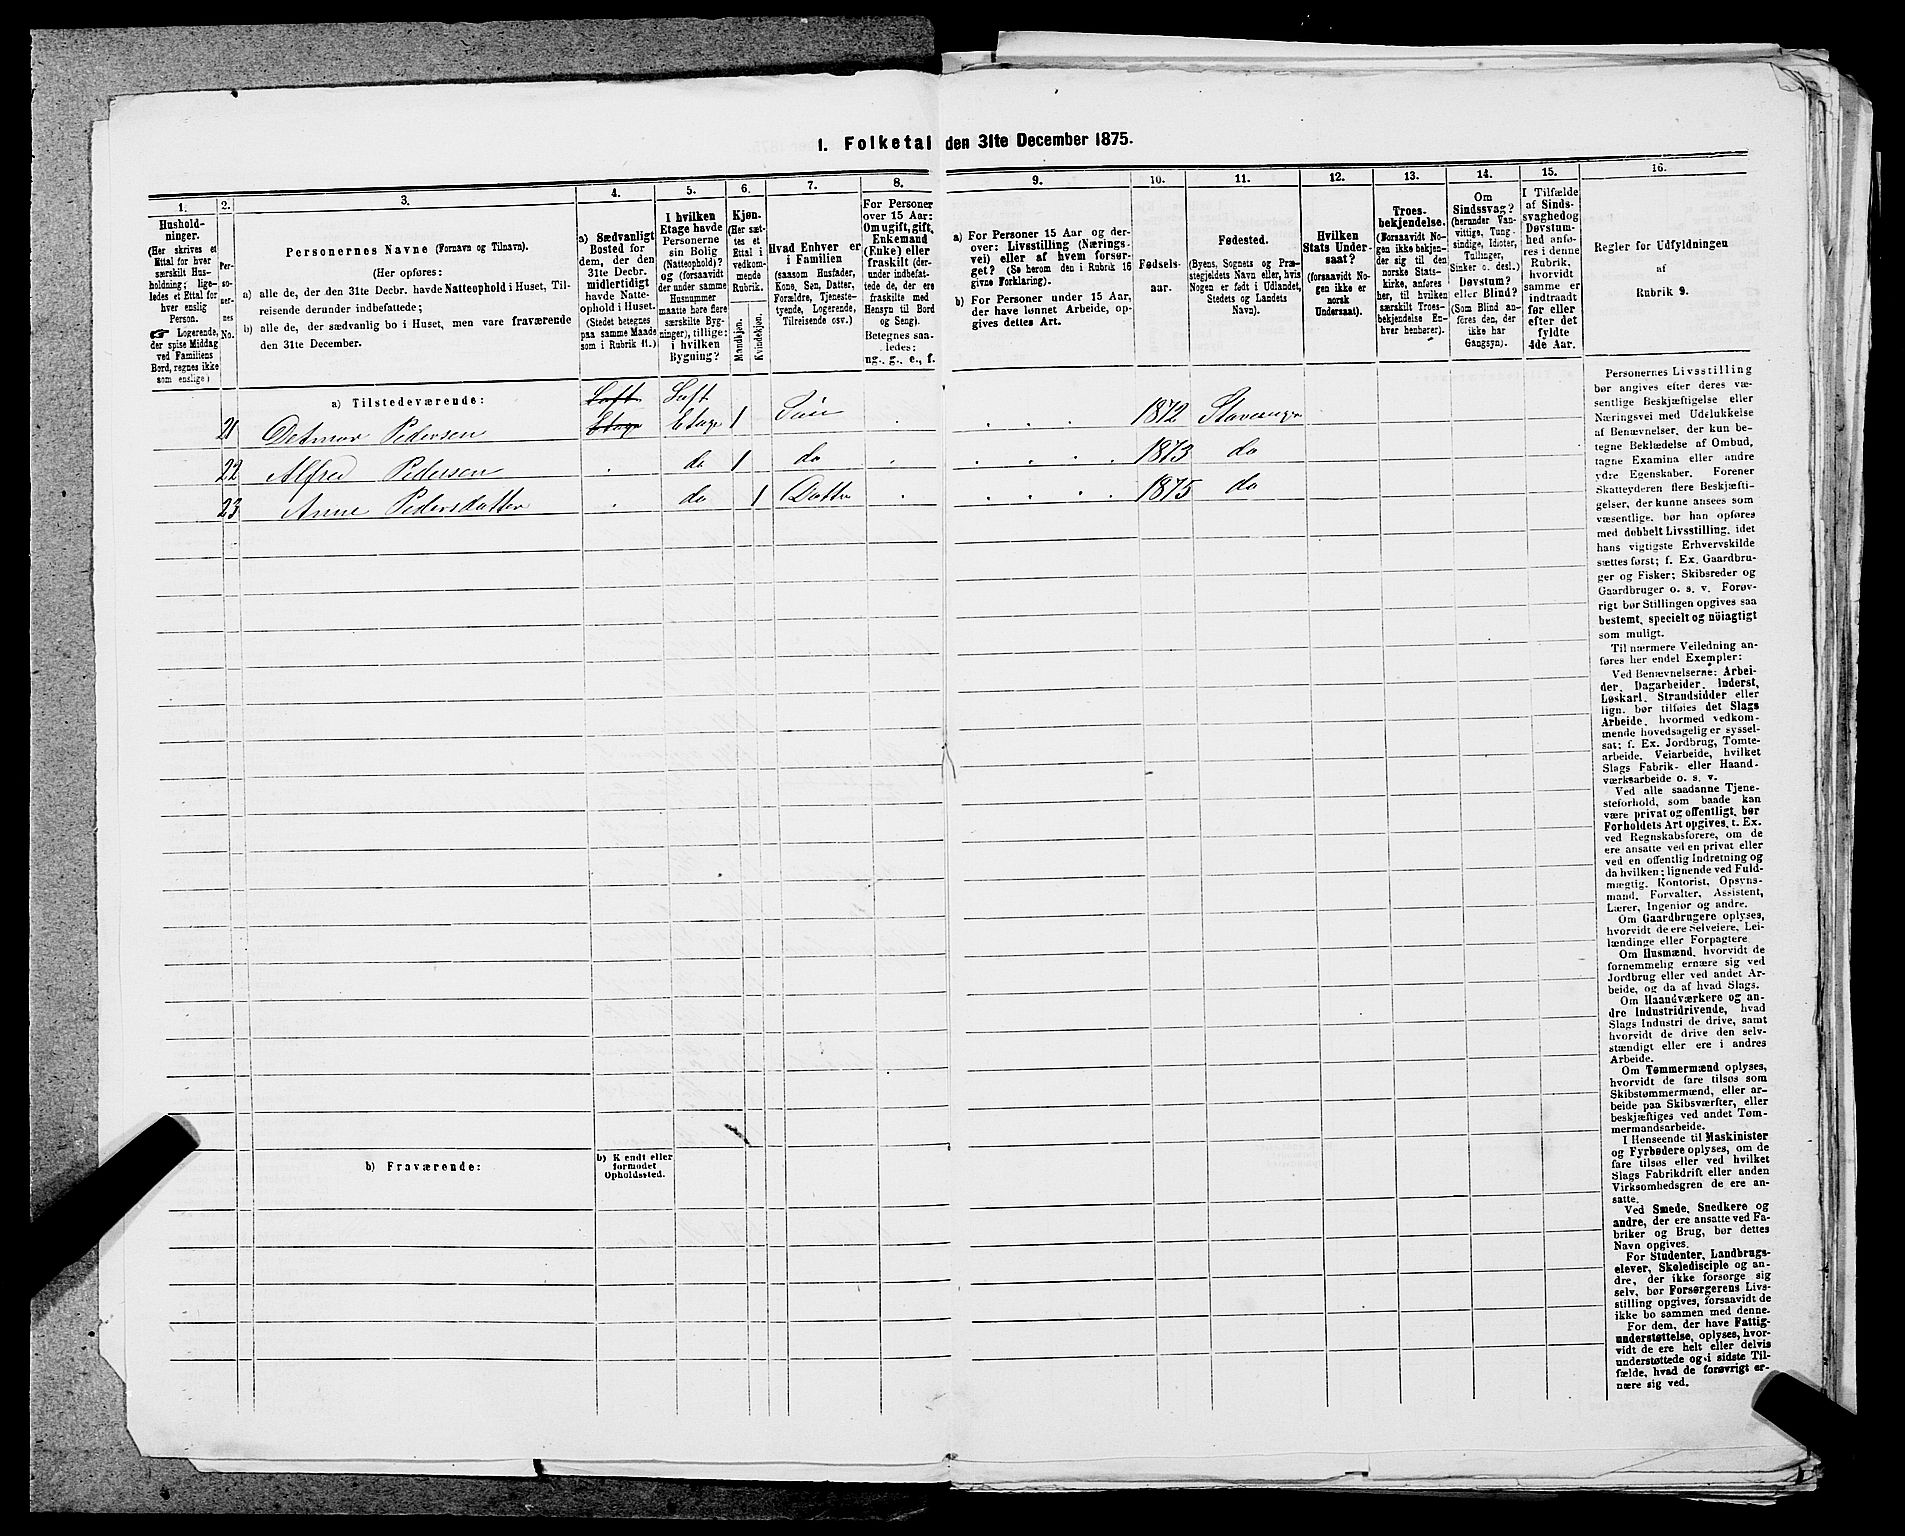 1. Folketal den 31te December 1875.
1.
Hushold-
ninger.
(Her skrives et
Ettal for hver
særskilt Hus-
holdning; lige-
ledes et Ettal for
hver enslig
Person.
☞ Logerende,
der spise Middag
ved Familiens
Bord, regnes ikke
som enslige)
2.
Per-
so-
ner-
nes
No.
3.
Personernes Navne (Fornavn og Tilnavn).
(Her opføres:
a) alle de, der den 31te Decbr. havde Natteophold i Huset, Til-
reisende derunder indbefattede;
b) alle de, der sædvanlig bo i Huset, men vare fraværende
den 31te December.
4.
a) Sædvanligt
Bosted for
dem, der den
31te Decbr.
midlertidigt
havde Natte-
ophold i Huset.
(Stedet betegnes
paa samme Maade
som i Rubrik 11.)
5.
I hvilken
Etage havde
Personerne
sin Bolig
(Natteophold)?
og (forsaavidt
der under samme
Husnummer
maatte høre flere
særskilte Byg-
ninger), tillige:
i hvilken
Bygning?
6.
Kjøn.
(Her sæt-
tes et
Ettal i
vedkom-
mende
Rubrik.
Mandkjøn.
Kvindekjøn.
7.
Hvad Enhver er
i Familien
(saasom Husfader,
Kone, Søn, Datter,
Forældre, Tjeneste-
tyende, Logerende,
Tilreisende osv.)
8.
For Personer
over 15 Aar:
Om ugift, gift,
Enkemand
(Enke) eller
fraskilt (der-
under indbefat-
tede de, der ere
fraskilte med
Hensyn til Bord
og Seng).
Betegnes saa-
ledes:
ug., g., e., f.
9.
a) For Personer 15 Aar og der-
over: Livsstilling (Nærings-
vei) eller af hvem forsør-
get? (Se herom den i Rubrik 16
givne Forklaring).
b) For Personer under 15 Aar,
der have lønnet Arbeide, op-
gives dettes Art.
10.
Fødsels-
aar.
11.
Fødested.
(Byens, Sognets og Præ-
stegjeldets Navn eller, hvis
Nogen er født i Udlandet,
Stedets og Landets
Navn).
12.
Hvilken
Stats Under-
saat?
(forsaavidt No-
gen ikke er
norsk
Undersaat).
13.
Troes-
bekjendelse.
(Forsaavidt No-
gen ikke bekjen-
der sig til den
norske Stats-
kirke, anføres
her, til hvilken
særskilt Troes-
bekjendelse En-
hver henhører).
14.
Om
Sindssvag?
(herunder Van-
vittige, Tung-
sindige, Idioter,
Tullinger,
Sinker o. desl.)
Døvstum?
eller Blind?
(Som Blind an-
føres den, der
ikke har
Gangsyn).
15.
I Tilfælde
af Sinds-
svaghed og
Døvstum-
hed anfø-
res i denne
Rubrik,
hvorvidt
samme er
indtraadt
før eller
efter det
fyldte
4de Aar.
16.
Regler for Udfyldningen
af
Rubrik 9.
a) Tilstedeværende:
Loft Loft
21 Detmar Pedersen Etage Etage 1 Søn 1872 Stavanger
22 Alfred Pedersen do 1 do 1873 do
23 Anne Pedersdatter do 1 Datter 1875 do
b) Fraværende:
b) Kjendt eller
formodet
Opholdssted.
Personernes Livsstilling
bør angives efter deres væ-
sentlige Beskjæftigelse eller
Næringsvei med Udelukkelse
af Benævnelser, der kun be-
tegne Beklædelse af Ombud,
tagne Examina eller andre
ydre Egenskaber. Forener
Skatteyderen flere Beskjæfti-
gelser, der kunne ansees som
væsentlige, bør han opføres
med dobbelt Livsstilling, idet
hans vigtigste Erhvervskilde
sættes først; f. Ex. Gaardbru-
ger og Fisker; Skibsreder og
Gaardbruger o. s. v. Forøv-
rigt bør Stillingen opgives saa
bestemt, specielt og nöiagtigt
som muligt.
Til nærmere Veiledning an-
føres her endel Exempler:
Ved Benævnelserne: Arbei-
der, Dagarbeider, Inderst,
Løskarl, Strandsidder eller
lign. bør tilføies det Slags
Arbeide, hvormed vedkom-
mende hovedsagelig er syssel-
sat; f. Ex. Jordbrug, Tomte-
arbeide, Veiarbeide, hvilket
Slags Fabrik- eller Haand-
værksarbeide o. s. v.
Ved alle saadanne Tjene-
steforhold, som baade kan
være privat og offentligt, bør
Forholdets Art opgives, t. Ex.
ved Regnskabsførere, om de
ere ansatte ved en privat eller
ved en offentlig Indretning og
da hvilken; lignende ved Fuld-
mægtig, Kontorist, Opsyns-
mand, Forvalter, Assistent,
Lærer, Ingeniør og andre.
Om Gaardbrugere oplyses,
hvorvidt de ere Selveiere, Lei-
lændinge eller Forpagtere
Om Husmænd, hvorvidt de
fornemmelig ernære sig ved
Jordbrug eller ved andet Ar-
beide, og da af hvad Slags.
Om Haandværkere og an-
dre Industridrivende, hvad
Slags Industri de drive, samt
hvorvidt de drive den selv-
stændigt eller ere i andres
Arbeide.
Om Tømmermænd oplyses,
hvorvidt de fare tilsøs som
Skibstømmermænd, eller ar-
beide paa Skibsværfter, eller
beskjæftiges ved andet Tøm-
mermandsarbeide.
I Henseende til Maskinister
og Fyrbødere oplyses, om de
fare tilsøs eller ved hvilket
Slags Fabrikdrift eller anden
Virksomhedsgren de ere an-
satte.
Ved Smede, Snedkere og
andre, der ere ansatte ved Fa-
briker og Brug, bør dettes
Navn opgives.
For Studenter, Landbrugs-
elever, Skoledisciple og an-
dre, der ikke forsørge sig
selv, bør Forsørgerens Livs-
stilling opgives, forsaavidt de
ikke bo sammen med denne.
For dem, der have Fattig-
understøttelse, oplyses, hvor-
vidt de ere helt eller delvis
understøttede og i sidste Til-
fælde, hvad de forøvrigt er-
nære sig ved.